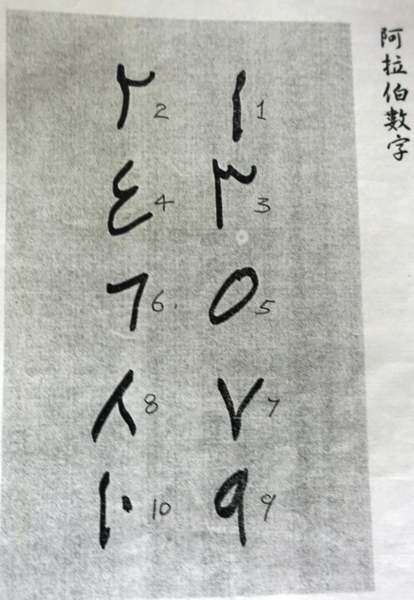 阿拉伯數字
١ 1 ٢ 2
٣ 3 ٤ 4
٥ 5 ٦ 6
٧ 7 ٨ 8
٩ 9 ١٠ 10